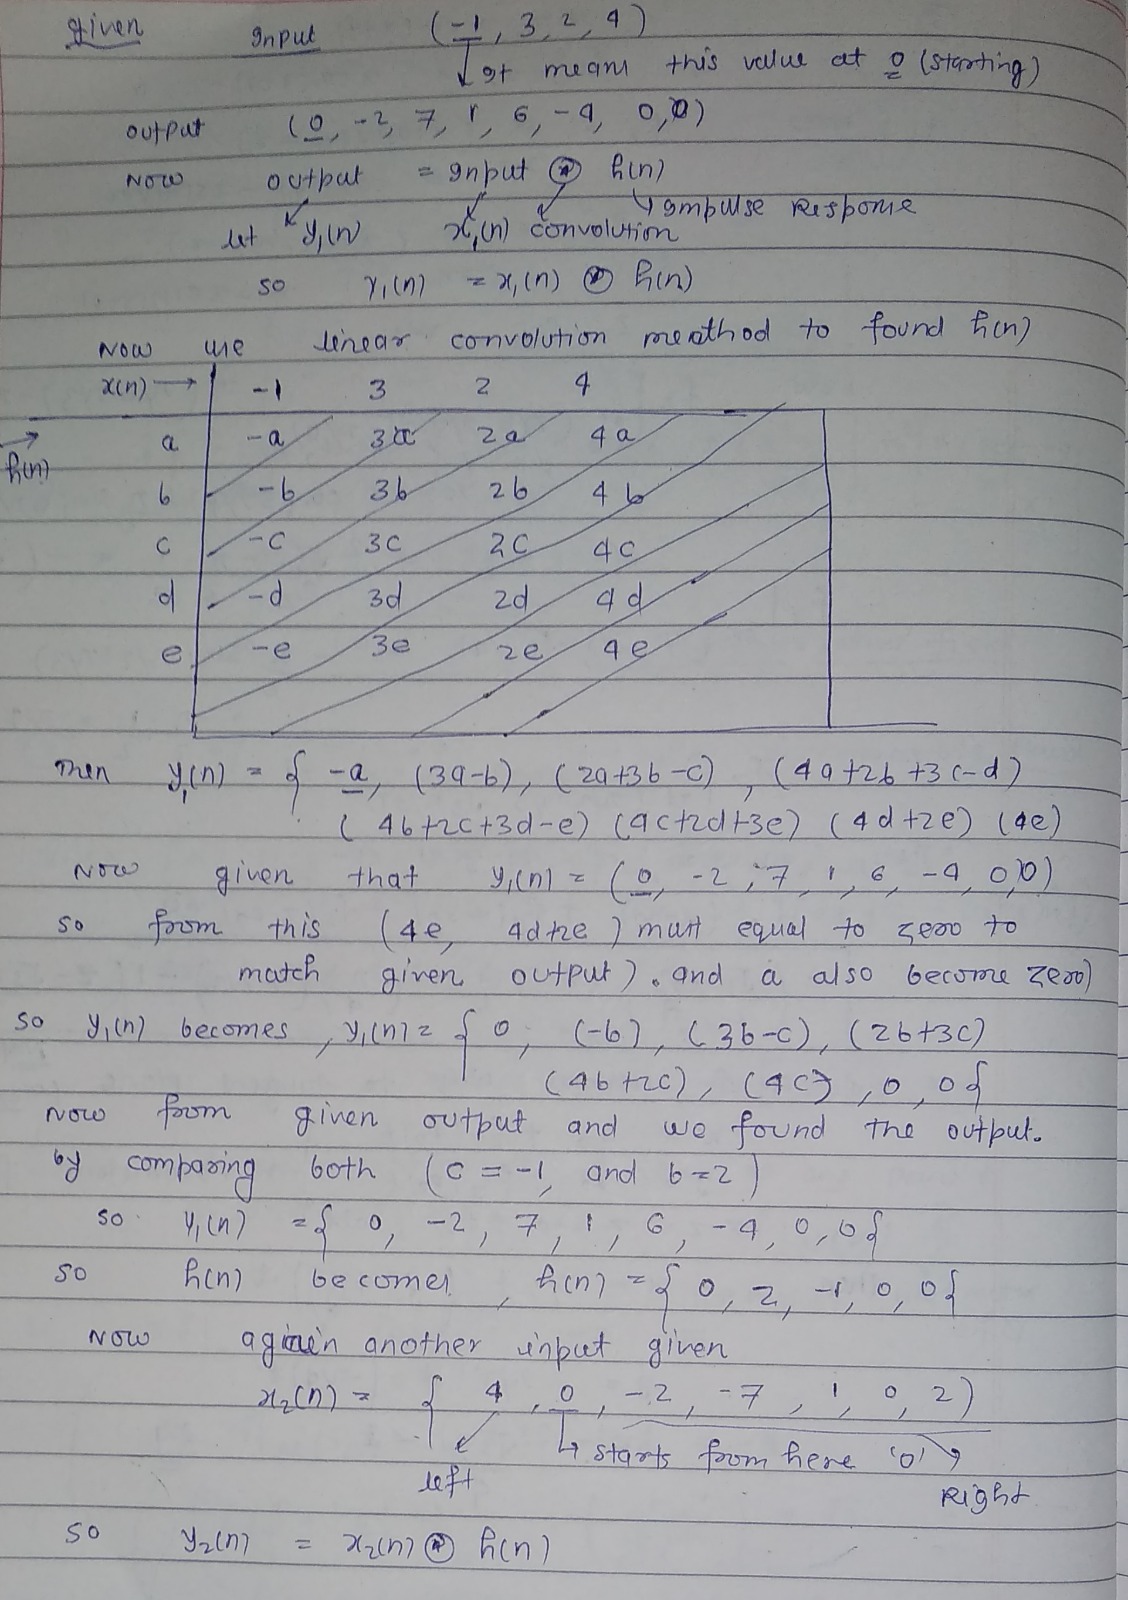 given Input (-1, 3, 2, 4)
It means this value at 0 (starting)
output (0, -2, 7, 1, 6, -4, 0,0)
Now output = Input ⊛ h(n)
↳ Impulse Response
let y₁(n) x₁(n) convolution
so y₁(n) = x₁(n) ⊛ h(n)
Now use linear convolution meathod to found h(n)
x(n) → -1 3 2 4
h(n) a -a 3a 2a 4a
b -b 3b 2b 4b
c -c 3c 2c 4c
d -d 3d 2d 4d
e -e 3e 2e 4e
Then y₁(n) = { -a, (3a-b), (2a+3b-c), (4a+2b+3c-d)
(4b+2c+3d-e) (4c+2d+3e) (4d+2e) (4e)
Now given that y₁(n) = (0, -2, 7, 1, 6, -4, 0,0)
so from this (4e, 4d+2e) must equal to zero to
match given output). and a also become zero)
so y₁(n) becomes, y₁(n) = { 0, (-b), (3b-c), (2b+3c)
(4b+2c), (4c), 0, 0}
Now from given output and we found the output.
by comparing both (c = -1, and b=2)
so y₁(n) = { 0, -2, 7, 1, 6, -4, 0, 0}
so h(n) becomes, h(n) = { 0, 2, -1, 0, 0}
Now again another input given
x₂(n) = { 4, 0, -2, -7, 1, 0, 2)
↳ starts from here '0'
left Right
so y₂(n) = x₂(n) ⊛ h(n)